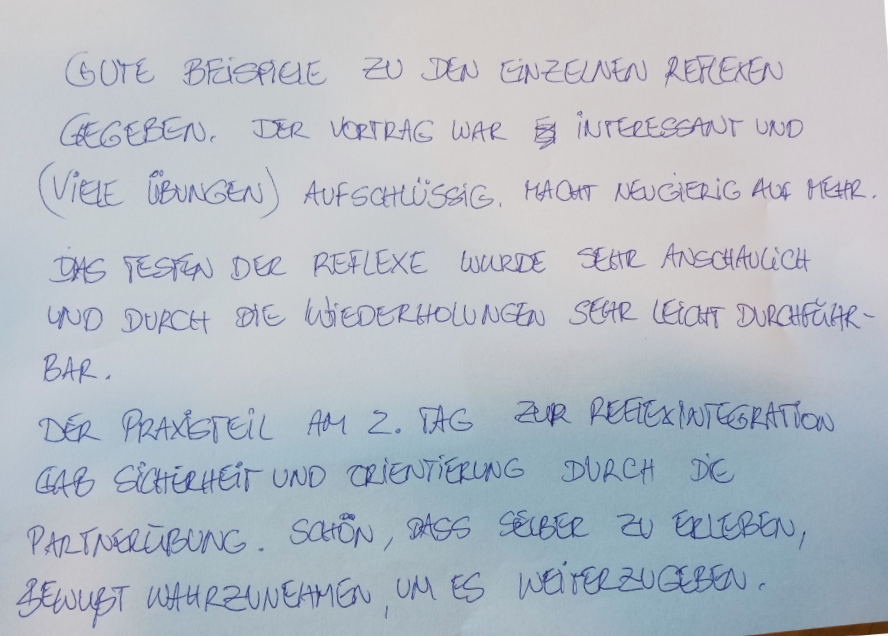 GUTE BEISPIELE ZU DEN EINZELNEN REFLEXEN
GEGEBEN. DER VORTRAG WAR INTERESSANT UND
(VIELE ÜBUNGEN) AUFSCHLÜSSIG. MACHT NEUGIERIG AUF MEHR.
DAS TESTEN DER REFLEXE WURDE SEHR ANSCHAULICH
UND DURCH DIE WIEDERHOLUNGEN SEHR LEICHT DURCHFÜHR-
BAR.
DER PRAXISTEIL AM 2. TAG ZUR REFLEXINTEGRATION
GAB SICHERHEIT UND ORIENTIERUNG DURCH DIE
PARTNERÜBUNG. SCHÖN, DASS SELBER ZU ERLEBEN,
BEWUßT WAHRZUNEHMEN, UM ES WEITERZUGEBEN.